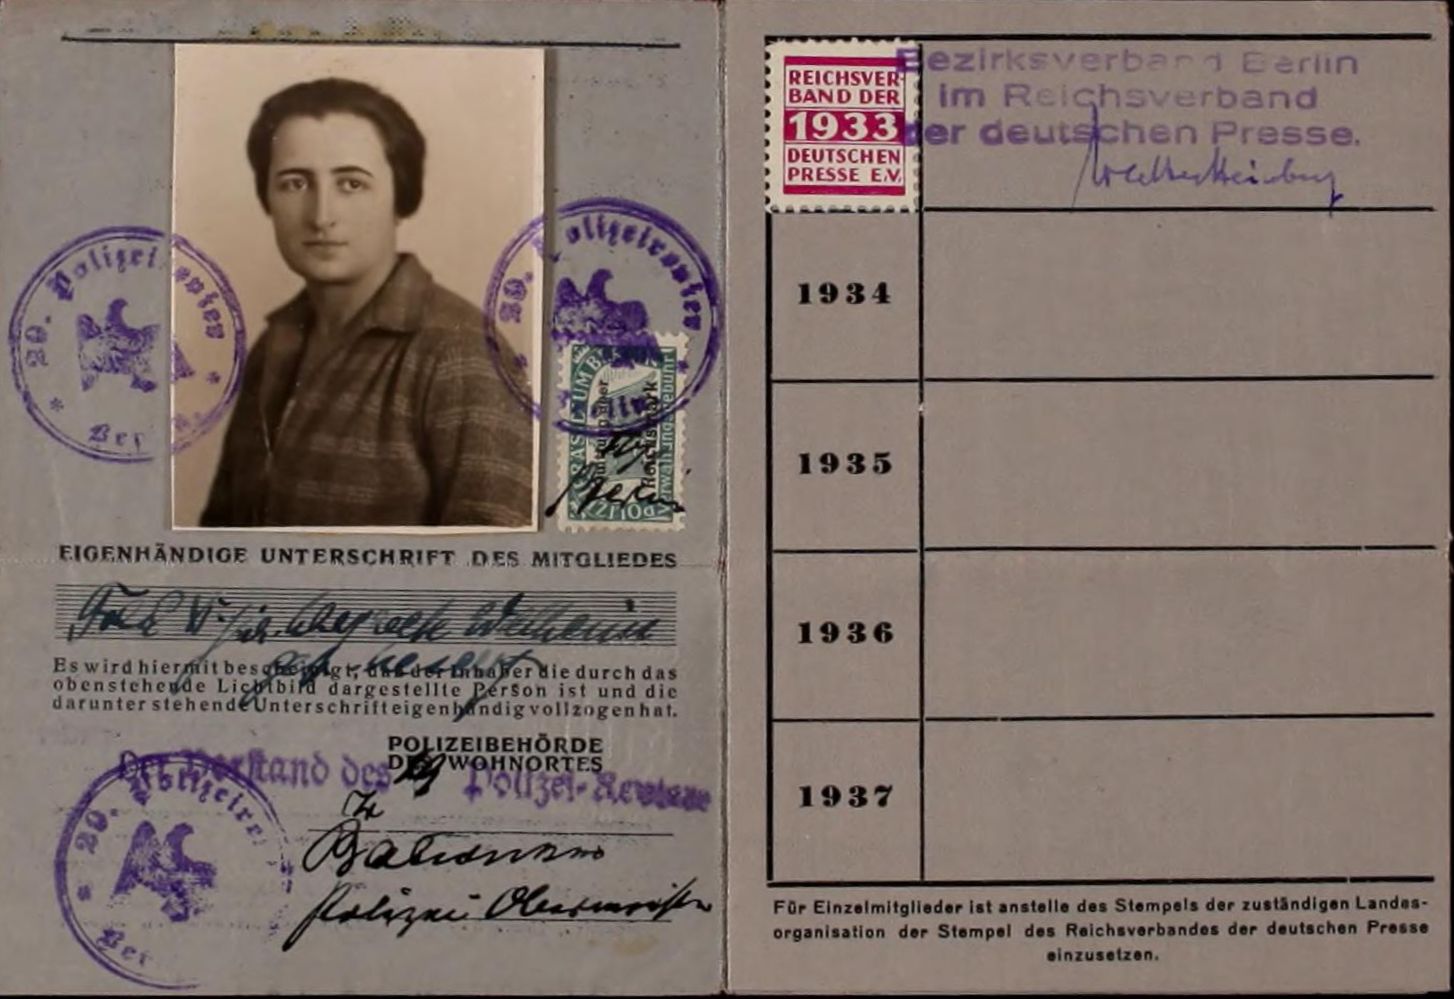 29. Polizeirevier
* Ber *
29. Polizeirevier
* Berlin *
POLIZEI
Reichsmark
Verwaltungsgebühr
Berlin
EIGENHÄNDIGE UNTERSCHRIFT DES MITGLIEDES
Es wird hiermit bescheinigt, daß der Inhaber die durch das
obenstehende Lichtbild dargestellte Person ist und die
darunter stehende Unterschrift eigenhändig vollzogen hat.
POLIZEIBEHÖRDE
DES WOHNORTES
Der Vorstand des 29 Polizei-Reviers
29. Polizeirev
* Ber
Polizei
REICHSVER
BAND DER
1933
DEUTSCHEN
PRESSE E.V.
Bezirksverband Berlin
im Reichsverband
der deutschen Presse.
1934
1935
1936
1937
Für Einzelmitglieder ist anstelle des Stempels der zuständigen Landes-
organisation der Stempel des Reichsverbandes der deutschen Presse
einzusetzen.